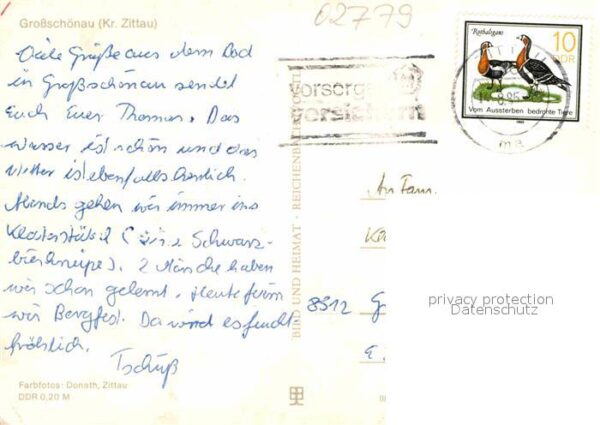 Großschönau (Kr. Zittau)
62779
Viele Grüße aus dem Bad
in Großschönau sendet
Euch Euer Thomas. Das
Wasser ist schön und das
Wetter ist ebenfalls herrlich.
Abends gehen wir immer ins
Klosterstübel (eine Schwarz-
bierkneipe). 2 Mönche haben
wir schon gelernt. Heute feiern
wir Bergfest. Da wird es feucht
fröhlich.
Tschüß
Farbfotos: Donath, Zittau
DDR 0,20 M
BILD UND HEIMAT · REICHENBACH (VOGTL)
vorsorgen
versichern
Rothalsgans
10
DDR
Vom Aussterben bedrohte Tiere
An Fam.
8312
privacy protection
Datenschutz